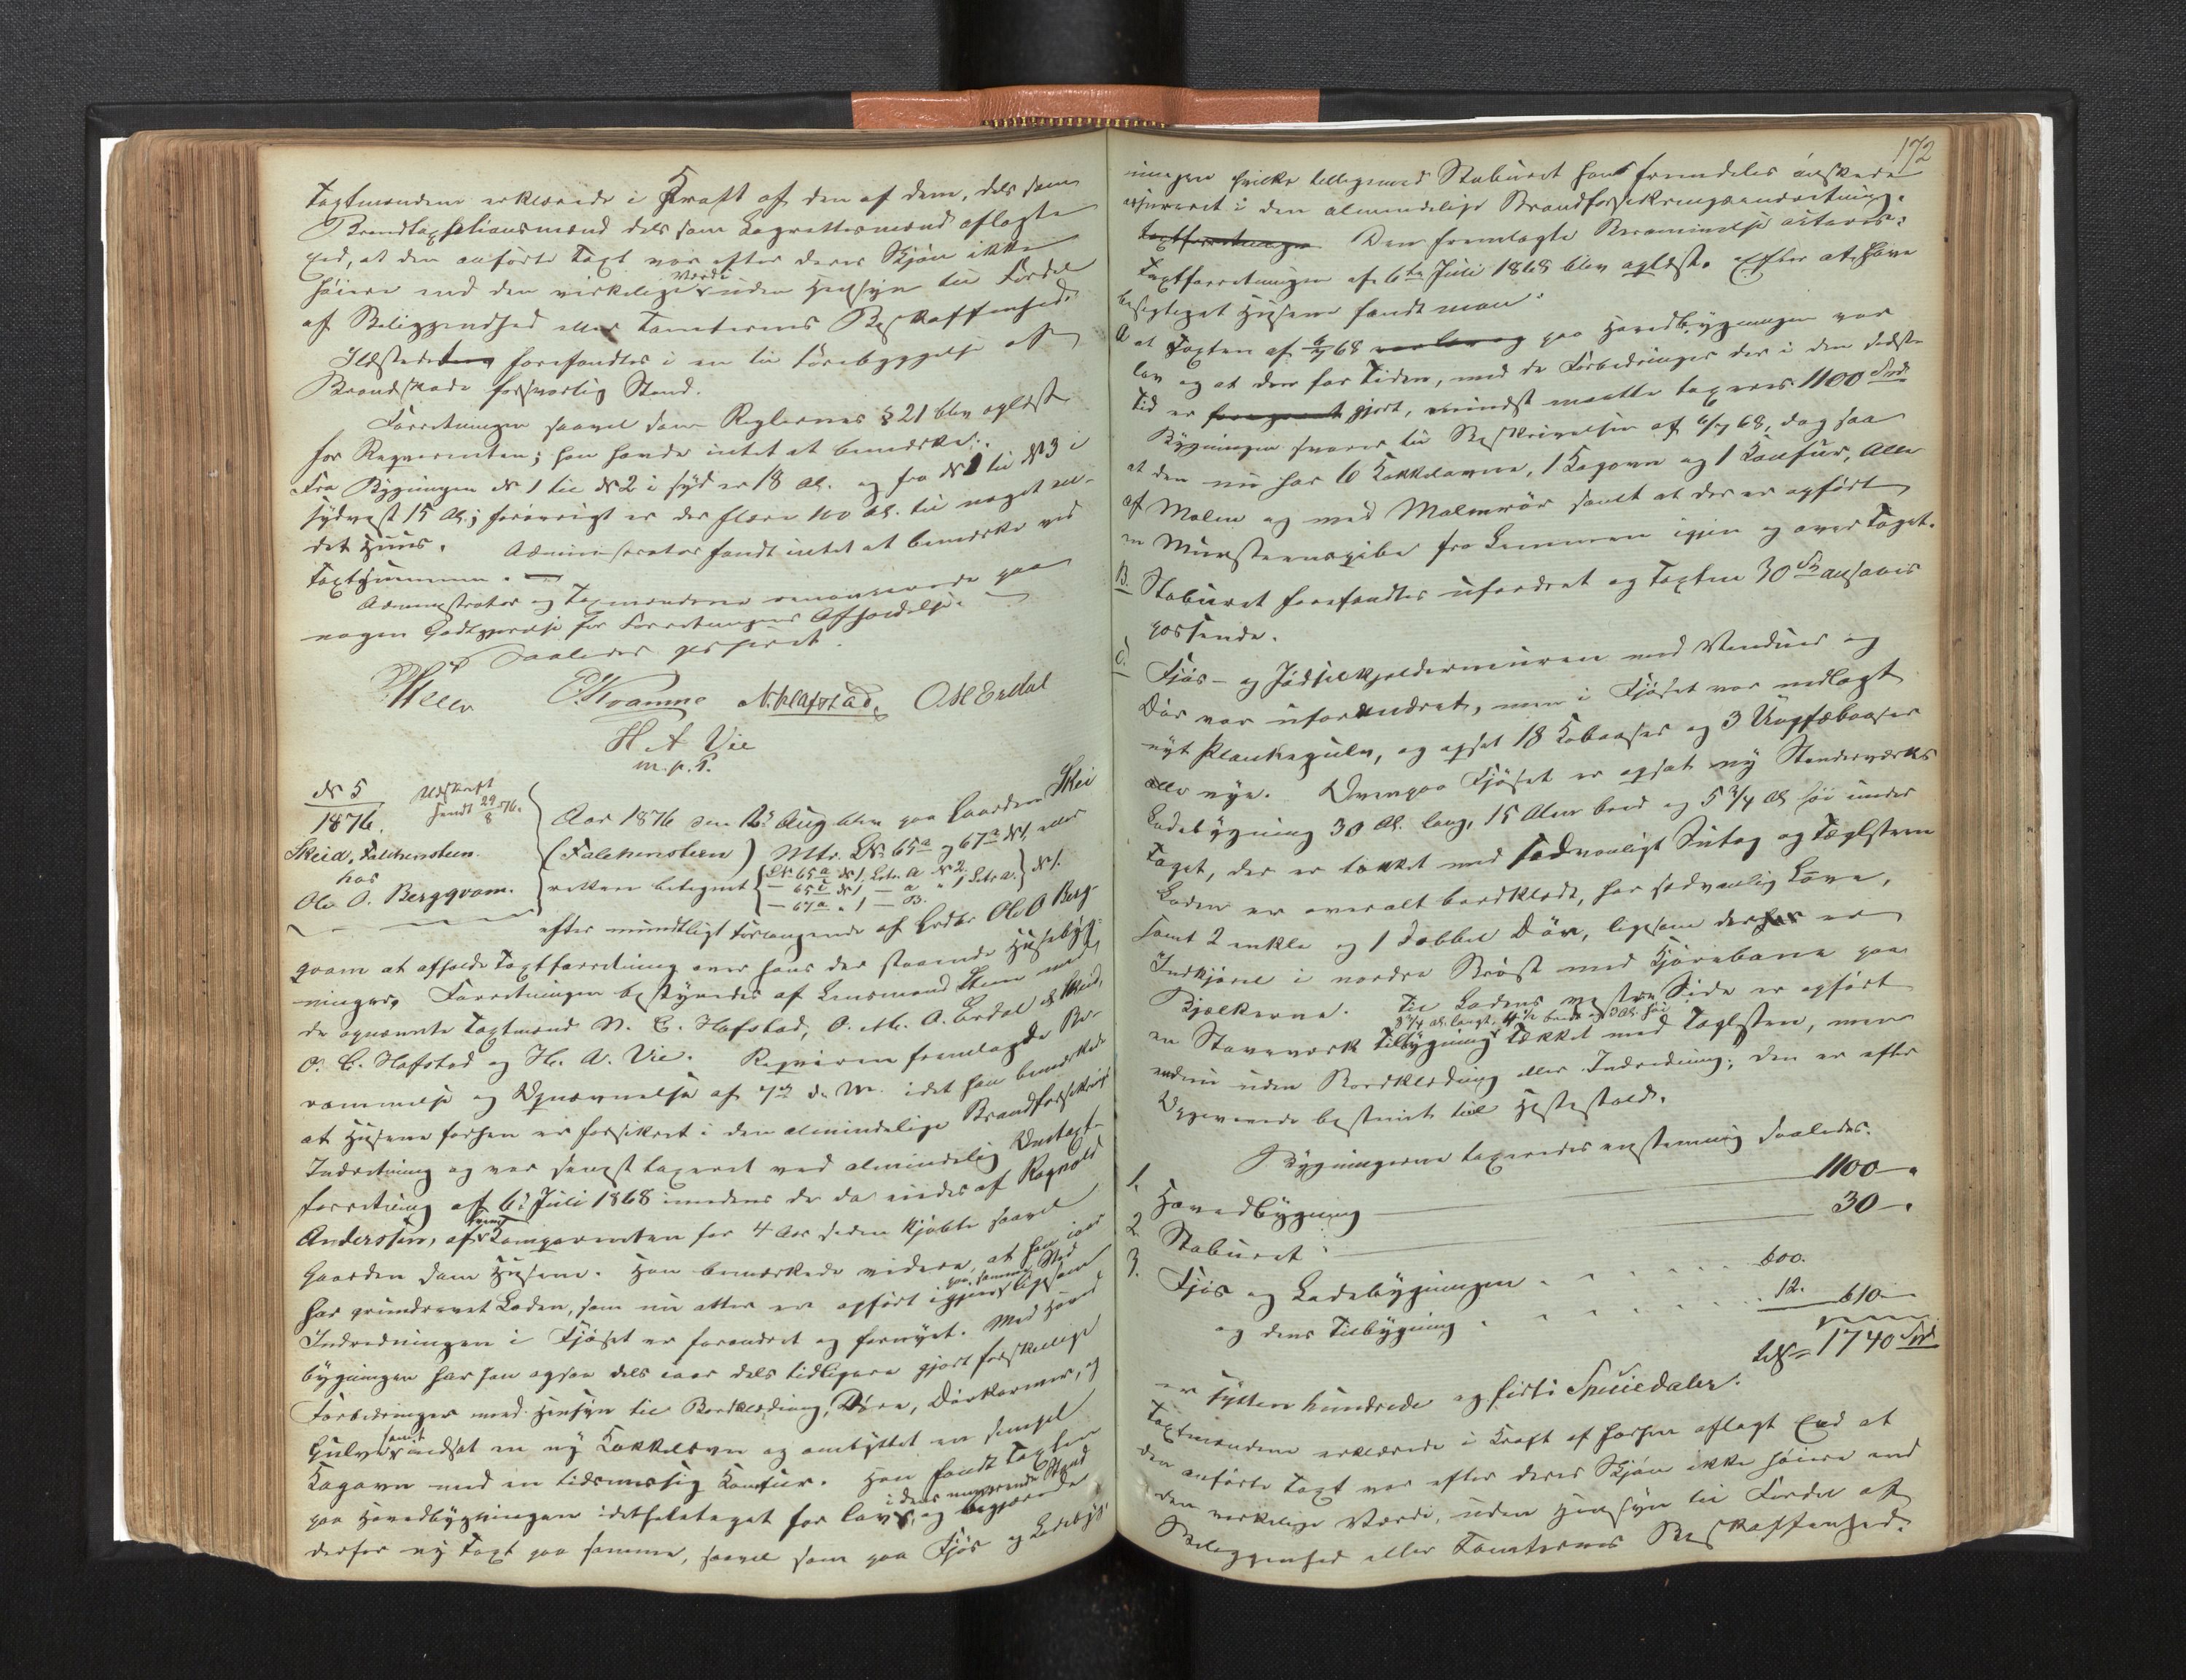 Taxtmændene erklærede i Kraft af den af dem, dels som
Brandtaxationsmænd dels som Lagrettesmænd aflagte
Eed, at den anførte Taxt var efter deres Skjøn ikke
høiere end den virkelige Værdi uden Hensyn til Fordel
af Beliggenhed eller Tomternes Beskaffenhed.
Ildstederne forefandtes i en til Forebyggelse af
Brandskade forsvarlig Stand.
Forretningen saavel som Reglernes § 21 blev oplæst
for Reqvirenten; han havde intet at bemærke.
Fra Bygningen № 1 til № 2 i syd er 18 Al. og fra № 1 til № 3 i
sydvest 15 Al.; forøvrigt er der flere 100 Al. til noget an-
det Huus. Administrator fandt intet at bemærke ved
Taxtsummen.
Administrator og Taxtmændene renoncerede paa
nogen Godtgjørelse for Forretningens Afholdelse.
Saaledes passeret.
Kvamme N. E. Hafstad O M Erdal
H A Vie
m. p. P.
№ 5
1876.
Udskrift
sendt 29/8 76.
Skei a. Falchensteen.
hos
Ole O. Bergqvam.
Aar 1876 den 12t Aug blev paa Gaarden Skei
(Falchensteen) Mtr. L№ 65a og 67a № 1, eller
rettere betegnet L№ 65a № 1 Litr. a № 2.
— 65c № 1 — a " 1 Litr a. № 1.
— 67a " 1 — B.
efter mundtligt Forlangende af Grdbr Ole O Berg-
qvam at afholde Taxtforretning over hans der staaende Husebyg-
ninger. Forretningen bestyredes af Lensmand med
de opnævnte Taxtmænd N. E. Hafstad, O. M. A. Erdal
O. E. Hafstad og H. A. Vie. Reqvirenten fremlagde Be-
rammelse og Opnævnelse af 7de d. M. idet han bemærkede
at Husene forhen er forsikret i den almindelige Brandforsikrings
Indretning og var senest taxeret ved almindelig Omtaxt-
forretning af 6t Juli 1868 imedens de da eiedes af Ragnald
Anderssen, af hvem Comparenten for 4 Aar siden kjøbte saavel
Gaarden som Husene. Han bemærkede videre, at han iaar
har grundrevet Laden, som nu atter er opført igjen paa samme Sted ligesom
Indredningen i Fjøset er forandret og fornyet. Med Hoved
bygningen har han ogsaa dels iaar dels tidligere gjort forskellige
Forbedringer med Hensyn til Bordklædning, Døre, Dørkarmer, og
Gulve samt indsat en ny Kakkelovn og ombyttet en simpel
Kagovn med en tidsmæssig Komfur. Han fandt Taxten
paa Hovedbygningen idethele taget for lav i dens nuværende Stand og begjærede
derfor ny Taxt paa samme, saavel som paa Fjøs og Ladebyg-
172
ningen hvilke tilligemed Staburet han fremdeles ønskede
assureret i den almindelige Brandforsikringsindretning.
Taxtforretningen Den fremlagte Berammelse
Taxtforretningen af 6te Juli 1868 blev oplæst. Efter at have
besigtiget Husene fandt man:
a at Taxten af 6/7 68 paa Hovedbygningen var
lav og at den for Tiden, med de Forbedringer der i den sidste
Tid er gjort, mindst maatte taxeres 1100 Spd.
Bygningen svarer til Beskrivelsen af 6/7 68, dog saa
at den nu har 6 Kakkelovne, 1 Kagovn og 1 Komfur, Alle
af Malm og med Malmrør samt at der er opført
en Murstenspibe fra Lemmen igjen og over Taget.
B. Staburet forefandtes uforandret og Taxten 30 Sp ansaaes
passende.
C. Fjøs- og Gjødselkjeldermuren med Vinduer og
Dør var uforandret, men i Fjøset var nedlagt
nyt Plankegulv, og opsat 18 Kobaaser og 3 Ungfæbaaser
alle nye. Ovenpaa Fjøset er opsat ny Stenderværks
Ladebygning 30 Al. lang, 15 Alen bred og 5 3/4 Al høi under
Taget, der er tækket med sædvanligt Sutag og Taglsteen
Laden er overalt bordklædt, har sædvanlig Lave,
samt 2 enkle og 1 dobbel Dør, ligesom der er
Indkjørsel i nordre Brøst med Kjørebane paa
Bjælkerne. Til Ladens vestre Side er opført
en Stavværk Tilbygning 8 3/4 Al. langt, 4 1/2 bredt og 3 Al. høi Tækket med Taglsten, men
endnu uden Bordklædning eller Indredning; den er efter
Opgivende bestemt til Hestestald.
Bygningerne taxeredes enstemmig saaledes.
1. Hovedbygning 1100 - "
2 Staburet 30 - "
3. Fjøs og Ladebygningen 600.
og dens Tilbygning 12. 610
1740 Spd
er sytten hundrede og firti Speciedaler.
Taxtmændene erklærede i Kraft af forhen aflagt Eed at
den anførte Taxt var efter deres Skjøn ikke høiere end
den virkelige Værdi, uden Hensyn til Fordel af
Beliggenhed eller Tomternes Beskaffenhed.